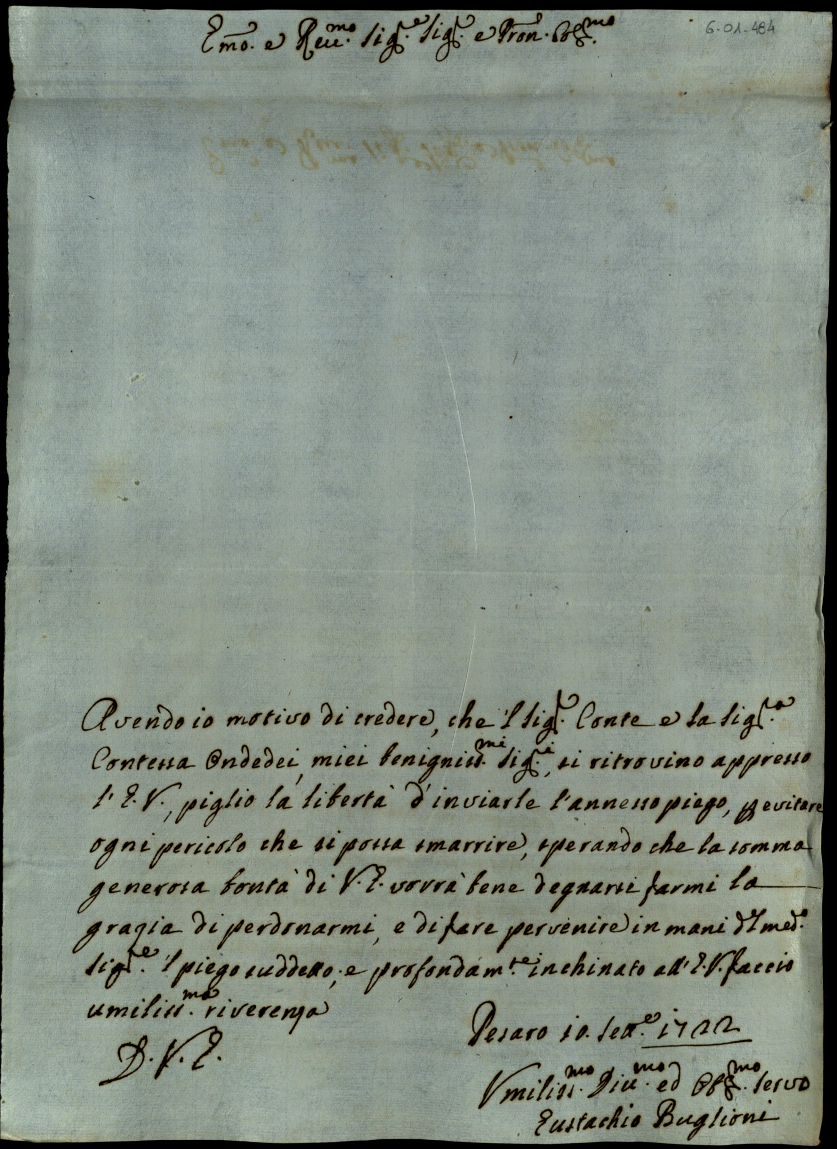 Emo. e Reu.mo Sig.e Sig.e e Pron. Col.mo
6-01-484
Avendo io motivo di credere, che 'l Sig.e Conte e la Sig.ra
Contessa Ondedei, miei benigniss.mi Sig.ri, si ritrovino appresso
l'E.V., piglio la libertà d'inviarle l'annesso piego, p evitare
ogni pericolo che si possa smarrire, sperando che la somma
generosa bontà di V.E. vorrà bene degnarsi farmi la
grazia di perdonarmi, e di fare pervenire in mani d'l med.o
Sig.e 'l piego suddetto; e profondam.te inchinato all'E.V. faccio
umiliss.ma riverenza
D.V.E.
Pesaro 10. Sett.e 1722
Vmiliss.mo Diu.mo ed Obl.mo Servo
Eustachio Buglioni